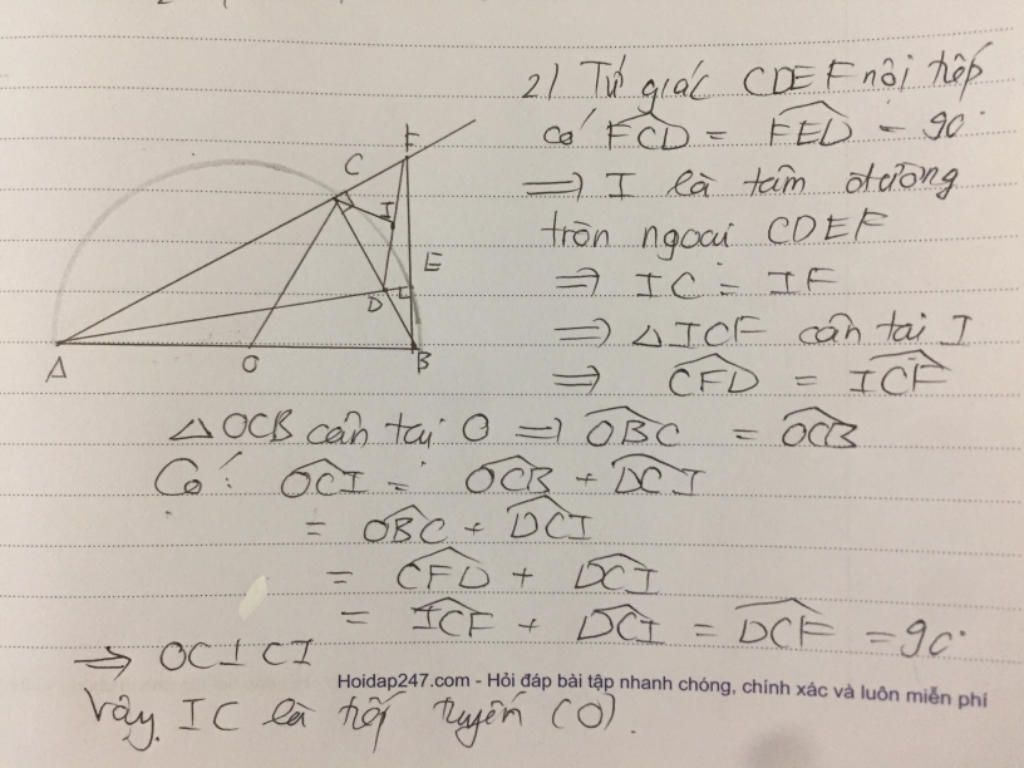 2) Tứ giác CDEF nội tiếp
có FCD = FED = 90°
=> I là tâm đường
tròn ngoai CDEF
=> IC = IF
=> △ICF cân tai I
=> CFD = ICF
△OCB cân tai O => OBC = OCB
Có: OCI = OCB + DCI
= OBC + DCI
= CFD + DCI
= ICF + DCI = DCF = 90°
=> OC⊥CI
Hoidap247.com - Hỏi đáp bài tập nhanh chóng, chính xác và luôn miễn phí
Vậy IC là tiếp tuyến (O).
F
C
I
E
D
A
O
B